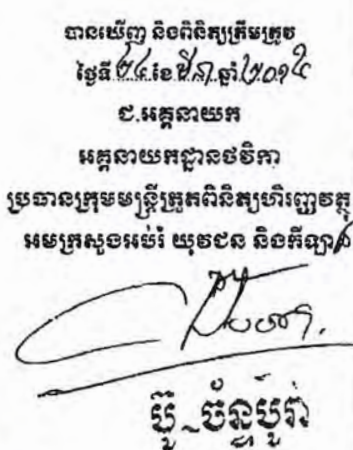 បានឃើញ និងពិនិត្យត្រឹមត្រូវ
ថ្ងៃទី ២៤ ខែ មីនា ឆ្នាំ ២០១៤
ជ.អគ្គនាយក
អគ្គនាយកដ្ឋានថវិកា
ប្រធានក្រុមមន្ត្រីត្រួតពិនិត្យហិរញ្ញវត្ថុ
អមក្រសួងអប់រំ យុវជន និងកីឡា
ប៊ូ_ច័ន្ទបូរ៉ា